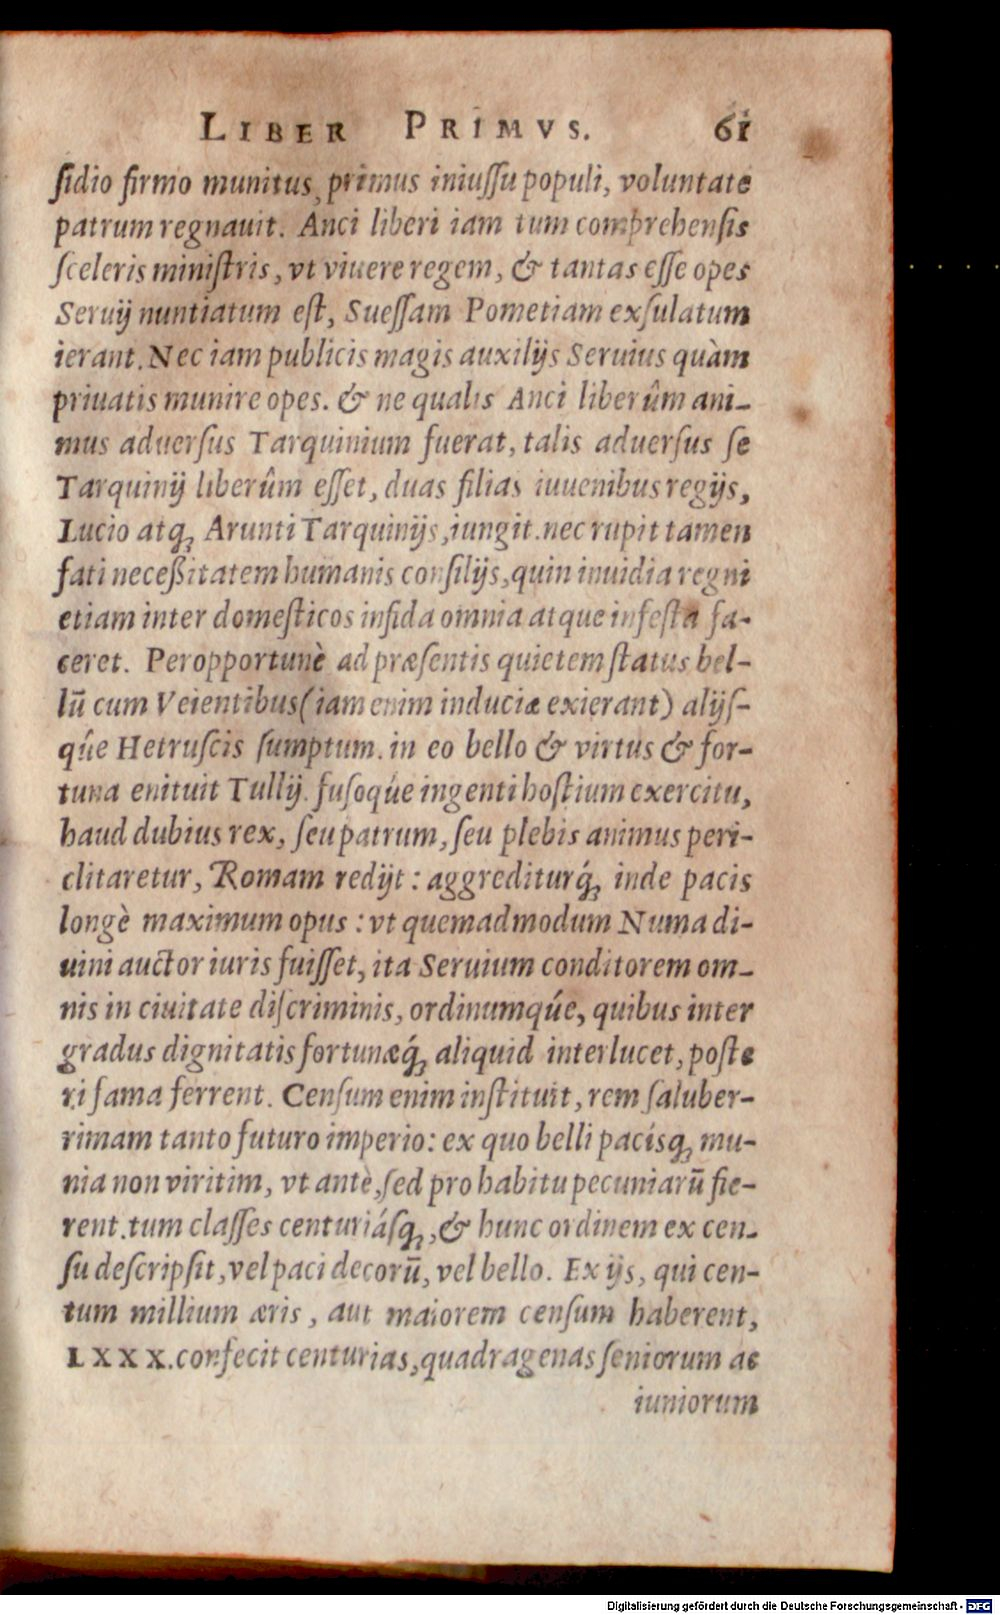 LIBER PRIMVS. 61
ſidio firmo munitus, primus iniuſſu populi, voluntate
patrum regnauit. Anci liberi iam tum comprehenſis
ſceleris miniſtris, vt viuere regem, & tantas eſſe opes
Seruij nuntiatum eſt, Sueſſam Pometiam exſulatum
ierant. Nec iam publicis magis auxilijs Seruius quàm
priuatis munire opes. & ne qualis Anci liberûm ani-
mus aduerſus Tarquinium fuerat, talis aduerſus ſe
Tarquinij liberûm eſſet, duas filias iuuenibus regijs,
Lucio atq; Arunti Tarquinijs, iungit. nec rupit tamen
fati neceßitatem humanis conſilijs, quin inuidia regni
etiam inter domeſticos infida omnia atque infeſta fa-
ceret. Peropportunè ad præſentis quietem ſtatus bel-
lū cum Veientibus (iam enim induciæ exierant) alijſ-
qûe Hetruſcis ſumptum. in eo bello & virtus & for-
tuna enituit Tullij. fuſoqúe ingenti hoſtium exercitu,
haud dubius rex, ſeu patrum, ſeu plebis animus peri-
clitaretur, Romam redijt: aggrediturq́; inde pacis
longè maximum opus: vt quemadmodum Numa di-
uini auctor iuris fuiſſet, ita Seruium conditorem om-
nis in ciuitate diſcriminis, ordinumqúe, quibus inter
gradus dignitatis fortunæq́; aliquid interlucet, poſte
ri fama ferrent. Cenſum enim inſtituit, rem ſaluber-
rimam tanto futuro imperio: ex quo belli paciſq; mu-
nia non viritim, vt antè, ſed pro habitu pecuniarū fie-
rent. tum claſſes centuriáſq;, & hunc ordinem ex cen-
ſu deſcripſit, vel paci decorū, vel bello. Ex ijs, qui cen-
tum millium æris, aut maiorem cenſum haberent,
LXXX. confecit centurias, quadragenas ſeniorum ac
iuniorum
Digitalisierung gefördert durch die Deutsche Forschungsgemeinschaft - DFG